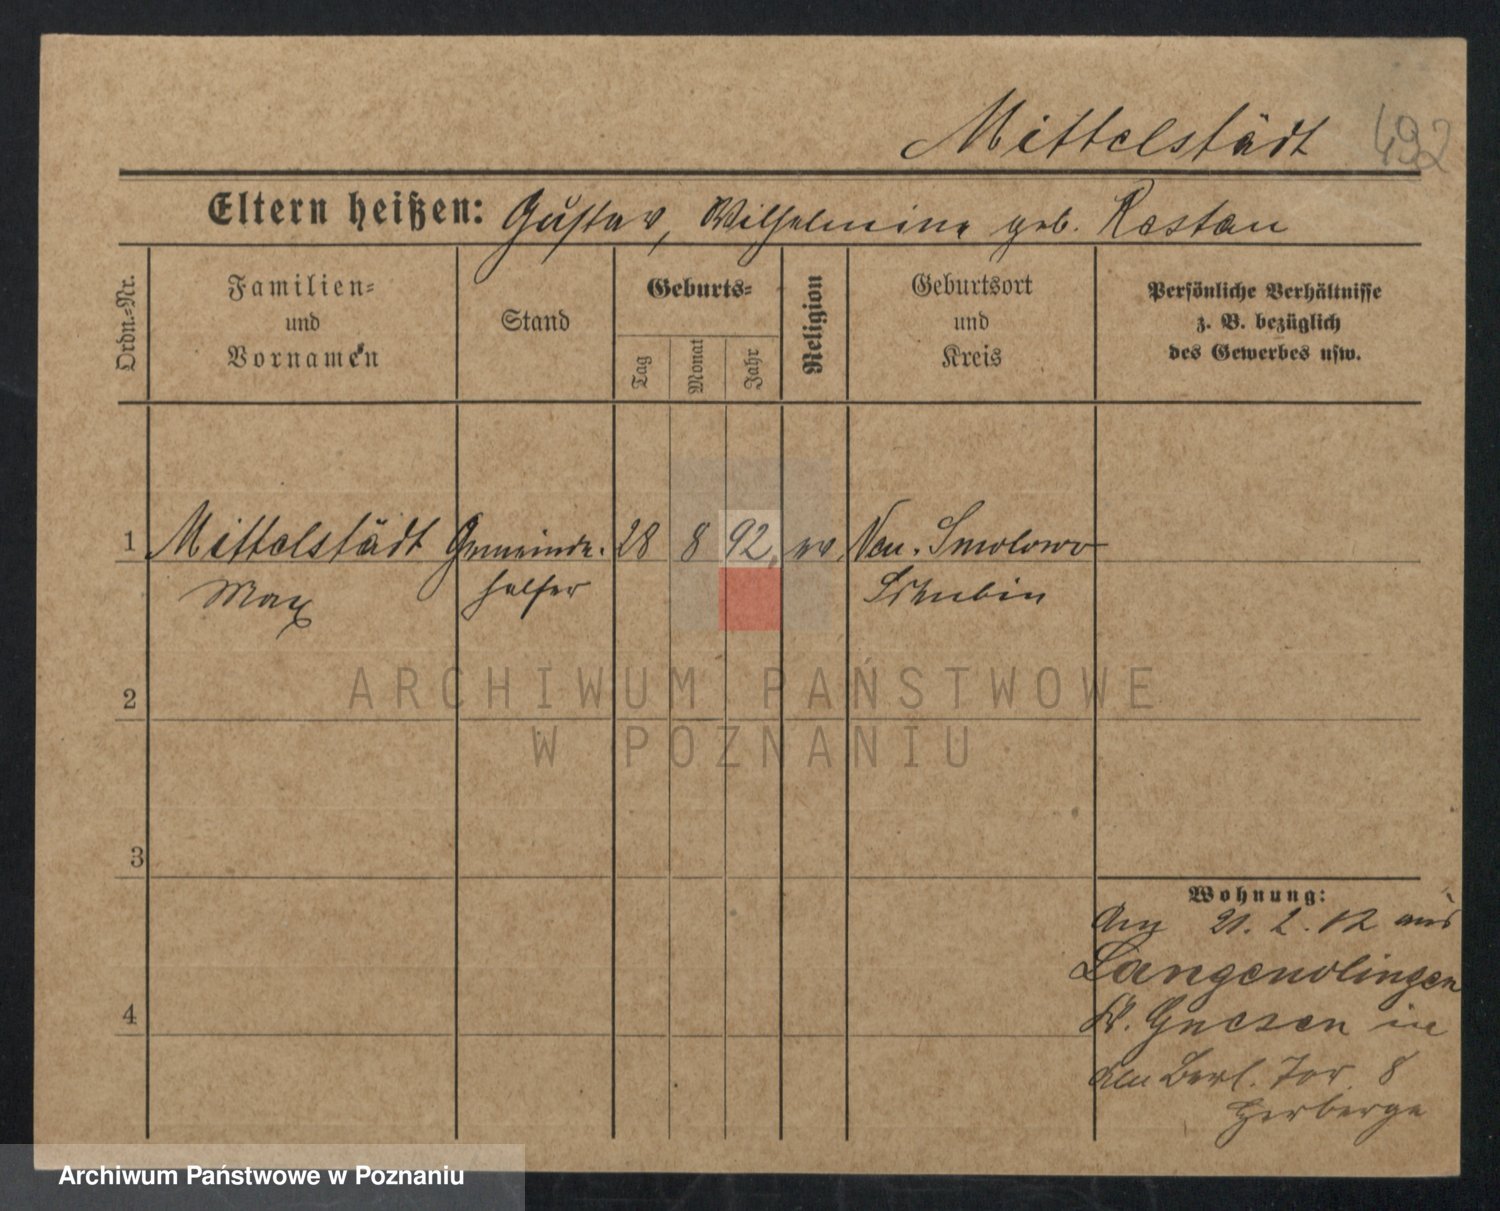 Mittelstädt 492
Eltern heißen: Gustav, Wilhelmine geb. Rastau
Ordn.-Nr.
Familien-
und
Vornamen
Stand
Geburts-
Tag
Monat
Jahr
Religion
Geburtsort
und
Kreis
Persönliche Verhältnisse
z. B. bezüglich
des Gewerbes usw.
1 Mittelstädt Gemeinde- 28 8 92. ev Neu. Smolowo
Max helfer Schubin
ARCHIWUM PAŃSTWOWE
2
W POZNANIU
3
Wohnung:
21. 2. 12 aus
Langenolingen
K. Gnesen in
Am Berl. Tor. 8
Herberge
4
Archiwum Państwowe w Poznaniu